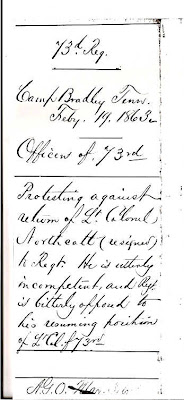 73d Reg.
Camp Bradley Tenn.
Feby. 19. 1863
Officers of 73rd
Protesting against
return of Lt Colonel
Northcott (resigned)
to Regt. He is utterly
incompetent, and Regt
is bitterly opposed to
his resuming position
of Lt Col of 73rd
A.G.O.